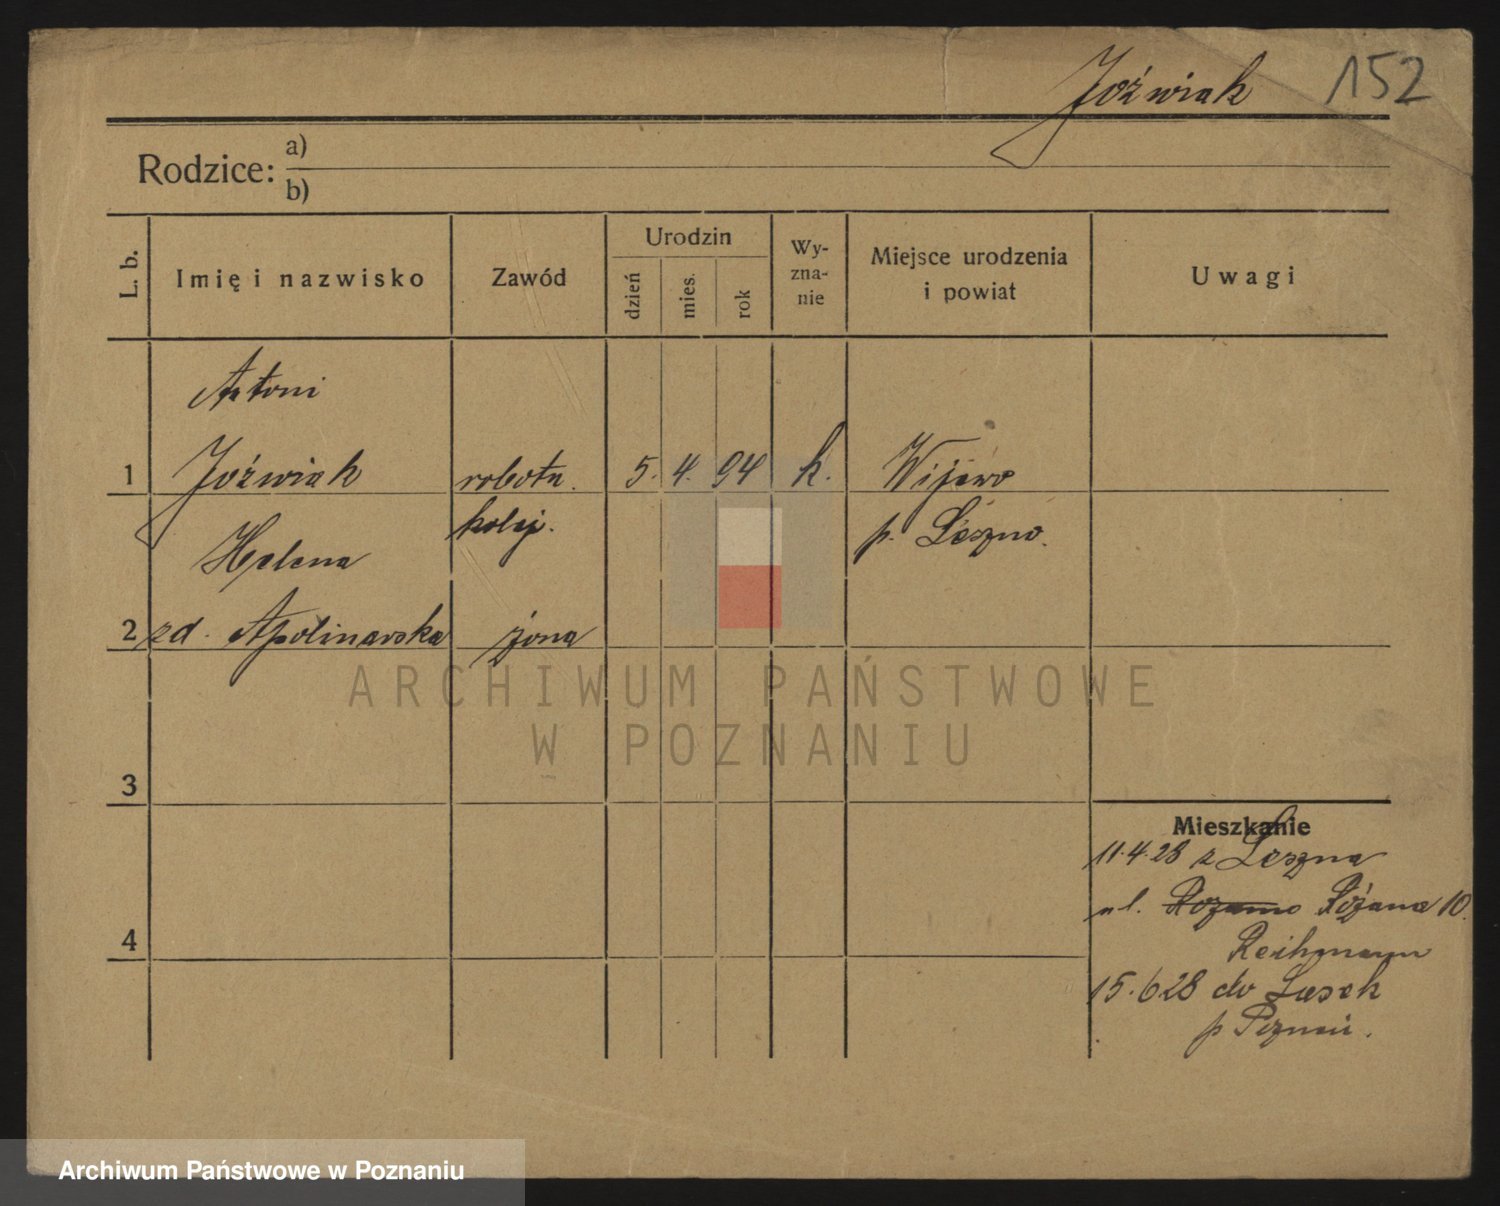 Jóźwiak 152
Rodzice: a)
b)
L. b.
Imię i nazwisko
Zawód
Urodzin
dzień
mies.
rok
Wy-
zna-
nie
Miejsce urodzenia
i powiat
Uwagi
Antoni
1 Jóźwiak robotn. 5. 4. 94 k. Wijewo
kolej. p. Leszno.
Helena
2 zd. Apolinarska żona
ARCHIWUM PAŃSTWOWE
W POZNANIU
3
Mieszkanie
11.4.28 z Leszna
ul. Rozamo Różana 10.
Reichmann
4
15.6.28 do Lasek
p Poznań.
Archiwum Państwowe w Poznaniu